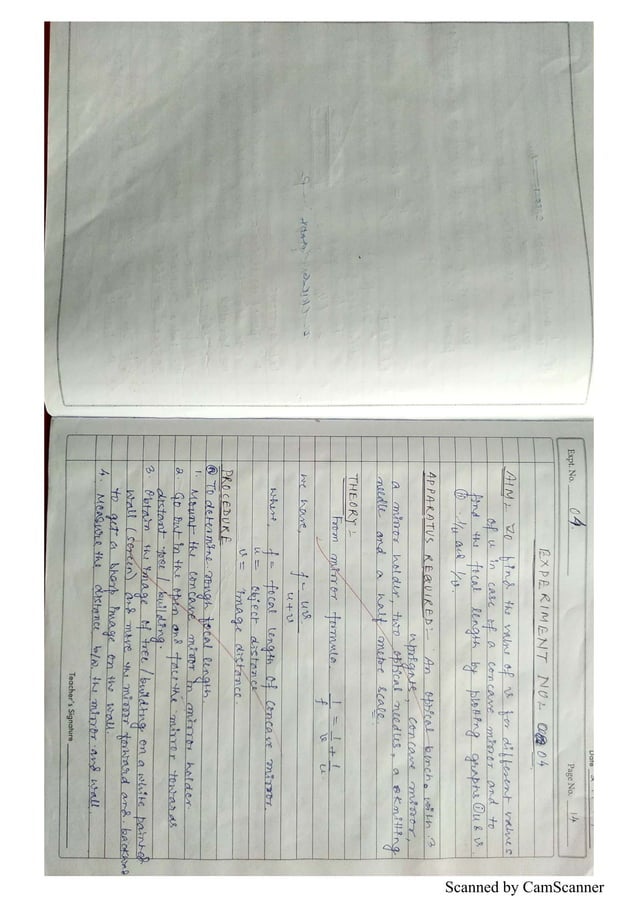 Date
Expt. No. 04
Page No. 14
EXPERIMENT NO:- 04
AIM:- To find the value of v for different values
of u in case of a concave mirror and to
find the focal length by plotting graphs ⓐ u & v
ⓑ 1/u and 1/v
APPARATUS REQUIRED:- An optical bench with 3
uprights, concave mirror,
a mirror holder, two optical needles, a knitting
needle and a half metre scale.
THEORY:-
From mirror formula 1/f = 1/v + 1/u
we have, f = uv/u+v
where, f = focal length of concave mirror.
u = object distance
v = image distance
PROCEDURE
ⓐ To determine rough focal length
1. Mount the concave mirror in mirror holder.
2. Go out in the open and face the mirror towards
distant tree / building.
3. Obtain the image of tree / building on a white painted
wall (screen) and move the mirror forward and backward
to get a sharp image on the wall.
4. Measure the distance b/w the mirror and wall.
Teacher's Signature
Scanned by CamScanner